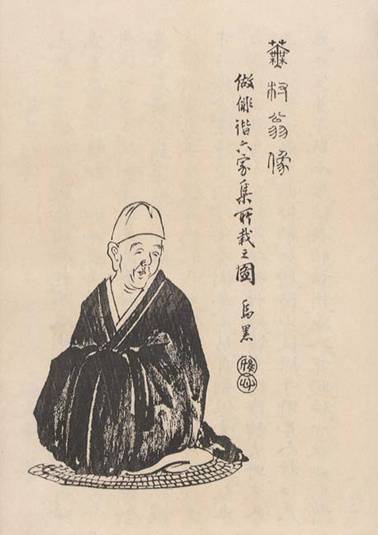 蕪村翁像
倣俳諧六家集所載之図 烏黒